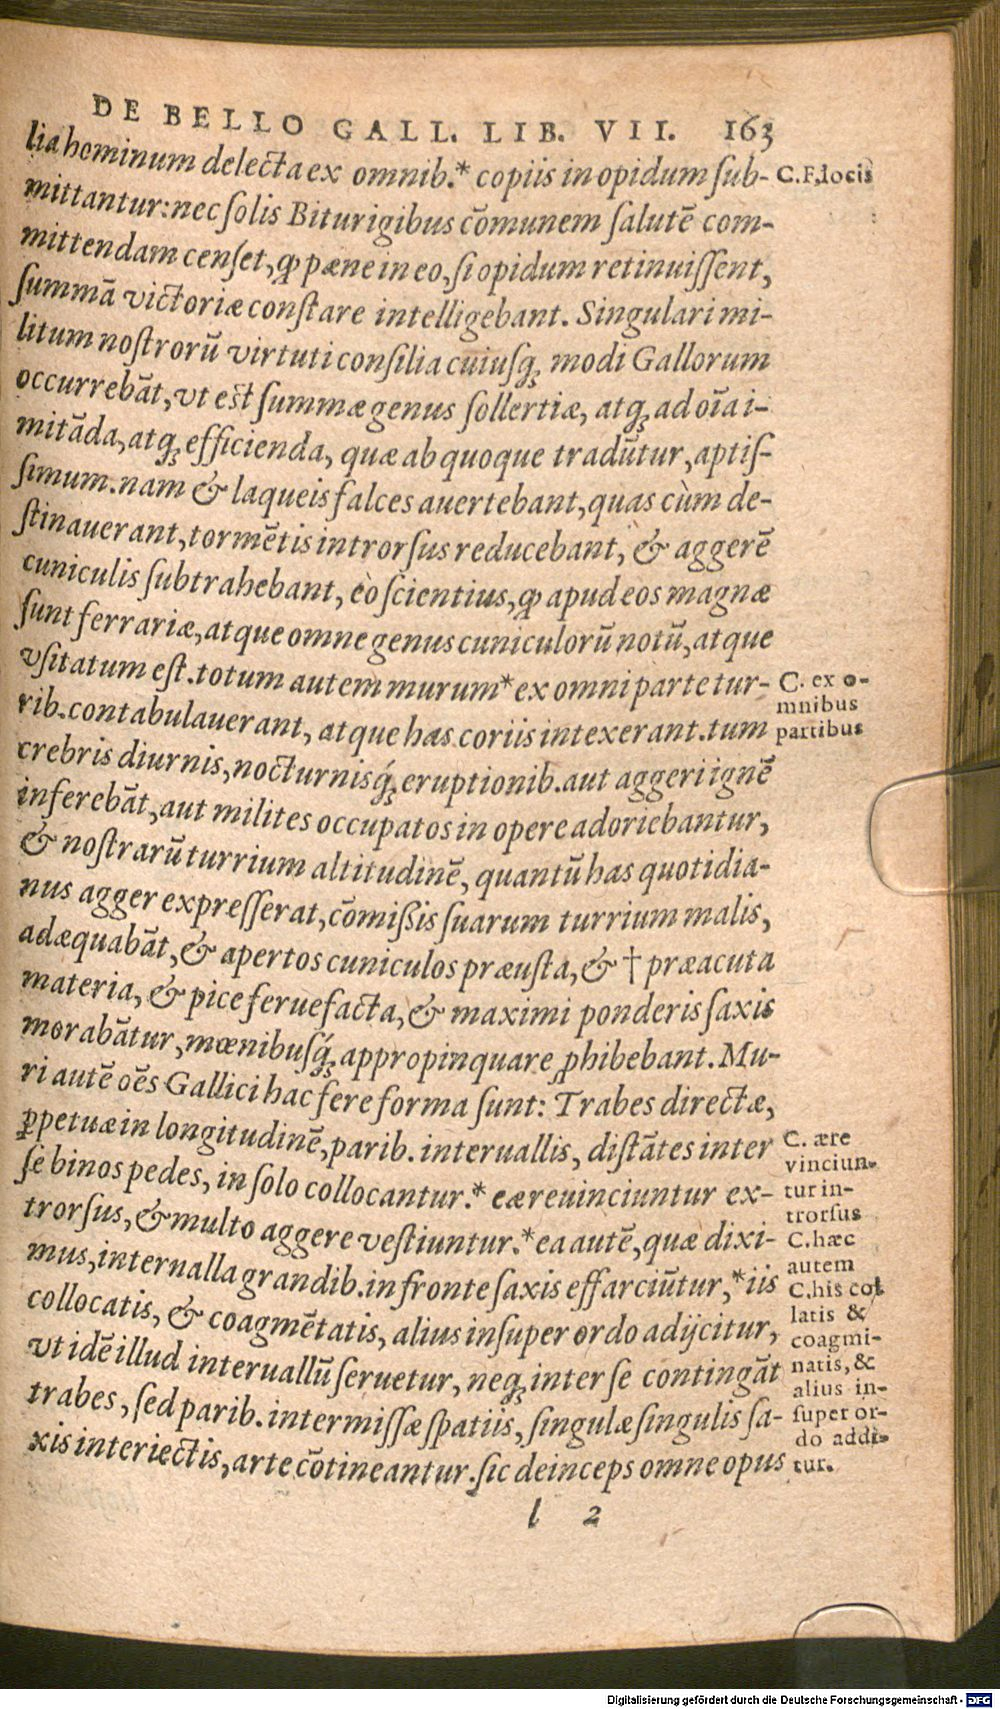 DE BELLO GALL. LIB. VII. 163
lia hominum delecta ex omnib.* copiis in opidum sub-
mittantur: nec solis Biturigibus cōmunem salutē com-
mittendam censet, ꝙ pæne in eo, si opidum retinuissent,
summā victoriæ constare intelligebant. Singulari mi-
litum nostrorū virtuti consilia cuiusq; modi Gallorum
occurrebāt, vt est summæ genus sollertiæ, atq; ad oīa i-
mitāda, atq; efficienda, quæ ab quoque tradūtur, aptis-
simum. nam & laqueis falces auertebant, quas cùm de-
stinauerant, tormētis introrsus reducebant, & aggerē
cuniculis subtrahebant, eò scientius, ꝙ apud eos magnæ
sunt ferrariæ, atque omne genus cuniculorū notū, atque
vsitatum est. totum autem murum* ex omni parte tur-
rib. contabulauerant, atque has coriis intexerant. tum
crebris diurnis, nocturnisq́; eruptionib. aut aggeri ignē
inferebāt, aut milites occupatos in opere adoriebantur,
& nostrarū turrium altitudinē, quantū has quotidia-
nus agger expresserat, cōmißis suarum turrium malis,
adæquabāt, & apertos cuniculos præusta, & † præacuta
materia, & pice feruefacta, & maximi ponderis saxis
morabātur, mœnibusq́; appropinquare ꝓhibebant. Mu-
ri autē oēs Gallici hac fere forma sunt: Trabes directæ,
ꝑpetuæ in longitudinē, parib. interuallis, distātes inter
se binos pedes, in solo collocantur.* eæ reuinciuntur ex-
trorsus, & multo aggere vestiuntur.* ea autē, quæ dixi-
mus, internalla grandib. in fronte saxis effarciūtur,* iis
collocatis, & coagmētatis, alius insuper ordo adijcitur,
vt idē illud interuallū seruetur, neq; inter se contingāt
trabes, sed parib. intermissæ spatiis, singulæ singulis sa-
xis interiectis, arte cōtineantur. sic deinceps omne opus
l 2
C.F. locis
C. ex o-
mnibus
partibus
C. ære
vinciun-
tur in-
trorsus
C. hæc
autem
C. his col
latis &
coagmi-
natis, &
alius in-
super or-
do addi-
tur.
Digitalisierung gefördert durch die Deutsche Forschungsgemeinschaft - DFG